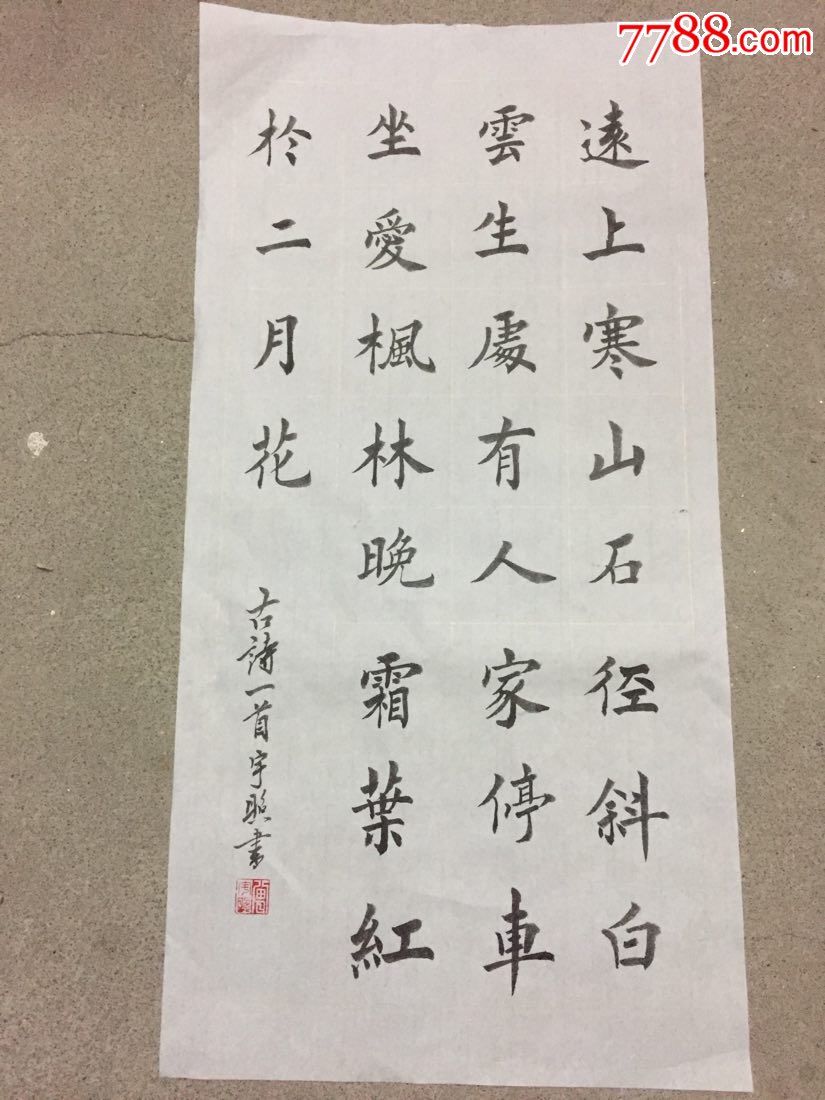 7788.com
遠上寒山石径斜白
雲生處有人家停車
坐愛楓林晚霜葉紅
於二月花
古詩一首宇照書